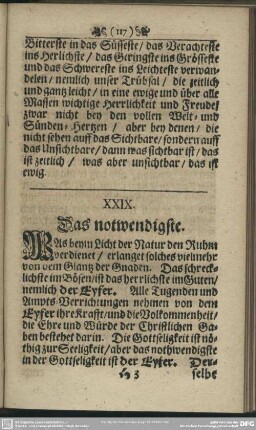 (117)
Bitterste in das Süsseste / das Verachteste
ins Herlichste / das Geringste ins Grösseste
und das Schwereste ins Leichteste verwan-
delen / nemlich unser Trübsal / die zeitlich
und gantz leicht / in eine ewige und über alle
Massen wichtige Herrlichkeit und Freude /
zwar nicht bey den vollen Welt- und
Sünden-Hertzen / aber bey denen / die
nicht sehen auff das Sichtbare / sondern auff
das Unsichtbare / dann was sichtbar ist / das
ist zeitlich / was aber unsichtbar / das ist
ewig.
XXIX.
Das notwendigste.
WAs beym Licht der Natur den Ruhm
verdienet / erlanget solches vielmehr
von dem Glantz der Gnaden. Das schreck-
lichste im Bösen / ist das herrlichste im Guten /
nemlich der Eyfer. Alle Tugenden und
Ampts-Verrichtungen nehmen von dem
Eyfer ihre Krafft / und die Volkommenheit /
die Ehre und Würde der Christlichen Ga-
ben bestehet darin. Die Gottseligkeit ist nö-
thig zur Seeligkeit / aber das nothwendigste
in der Gottseligkeit ist der Eyfer. Der-
H 3 selbe